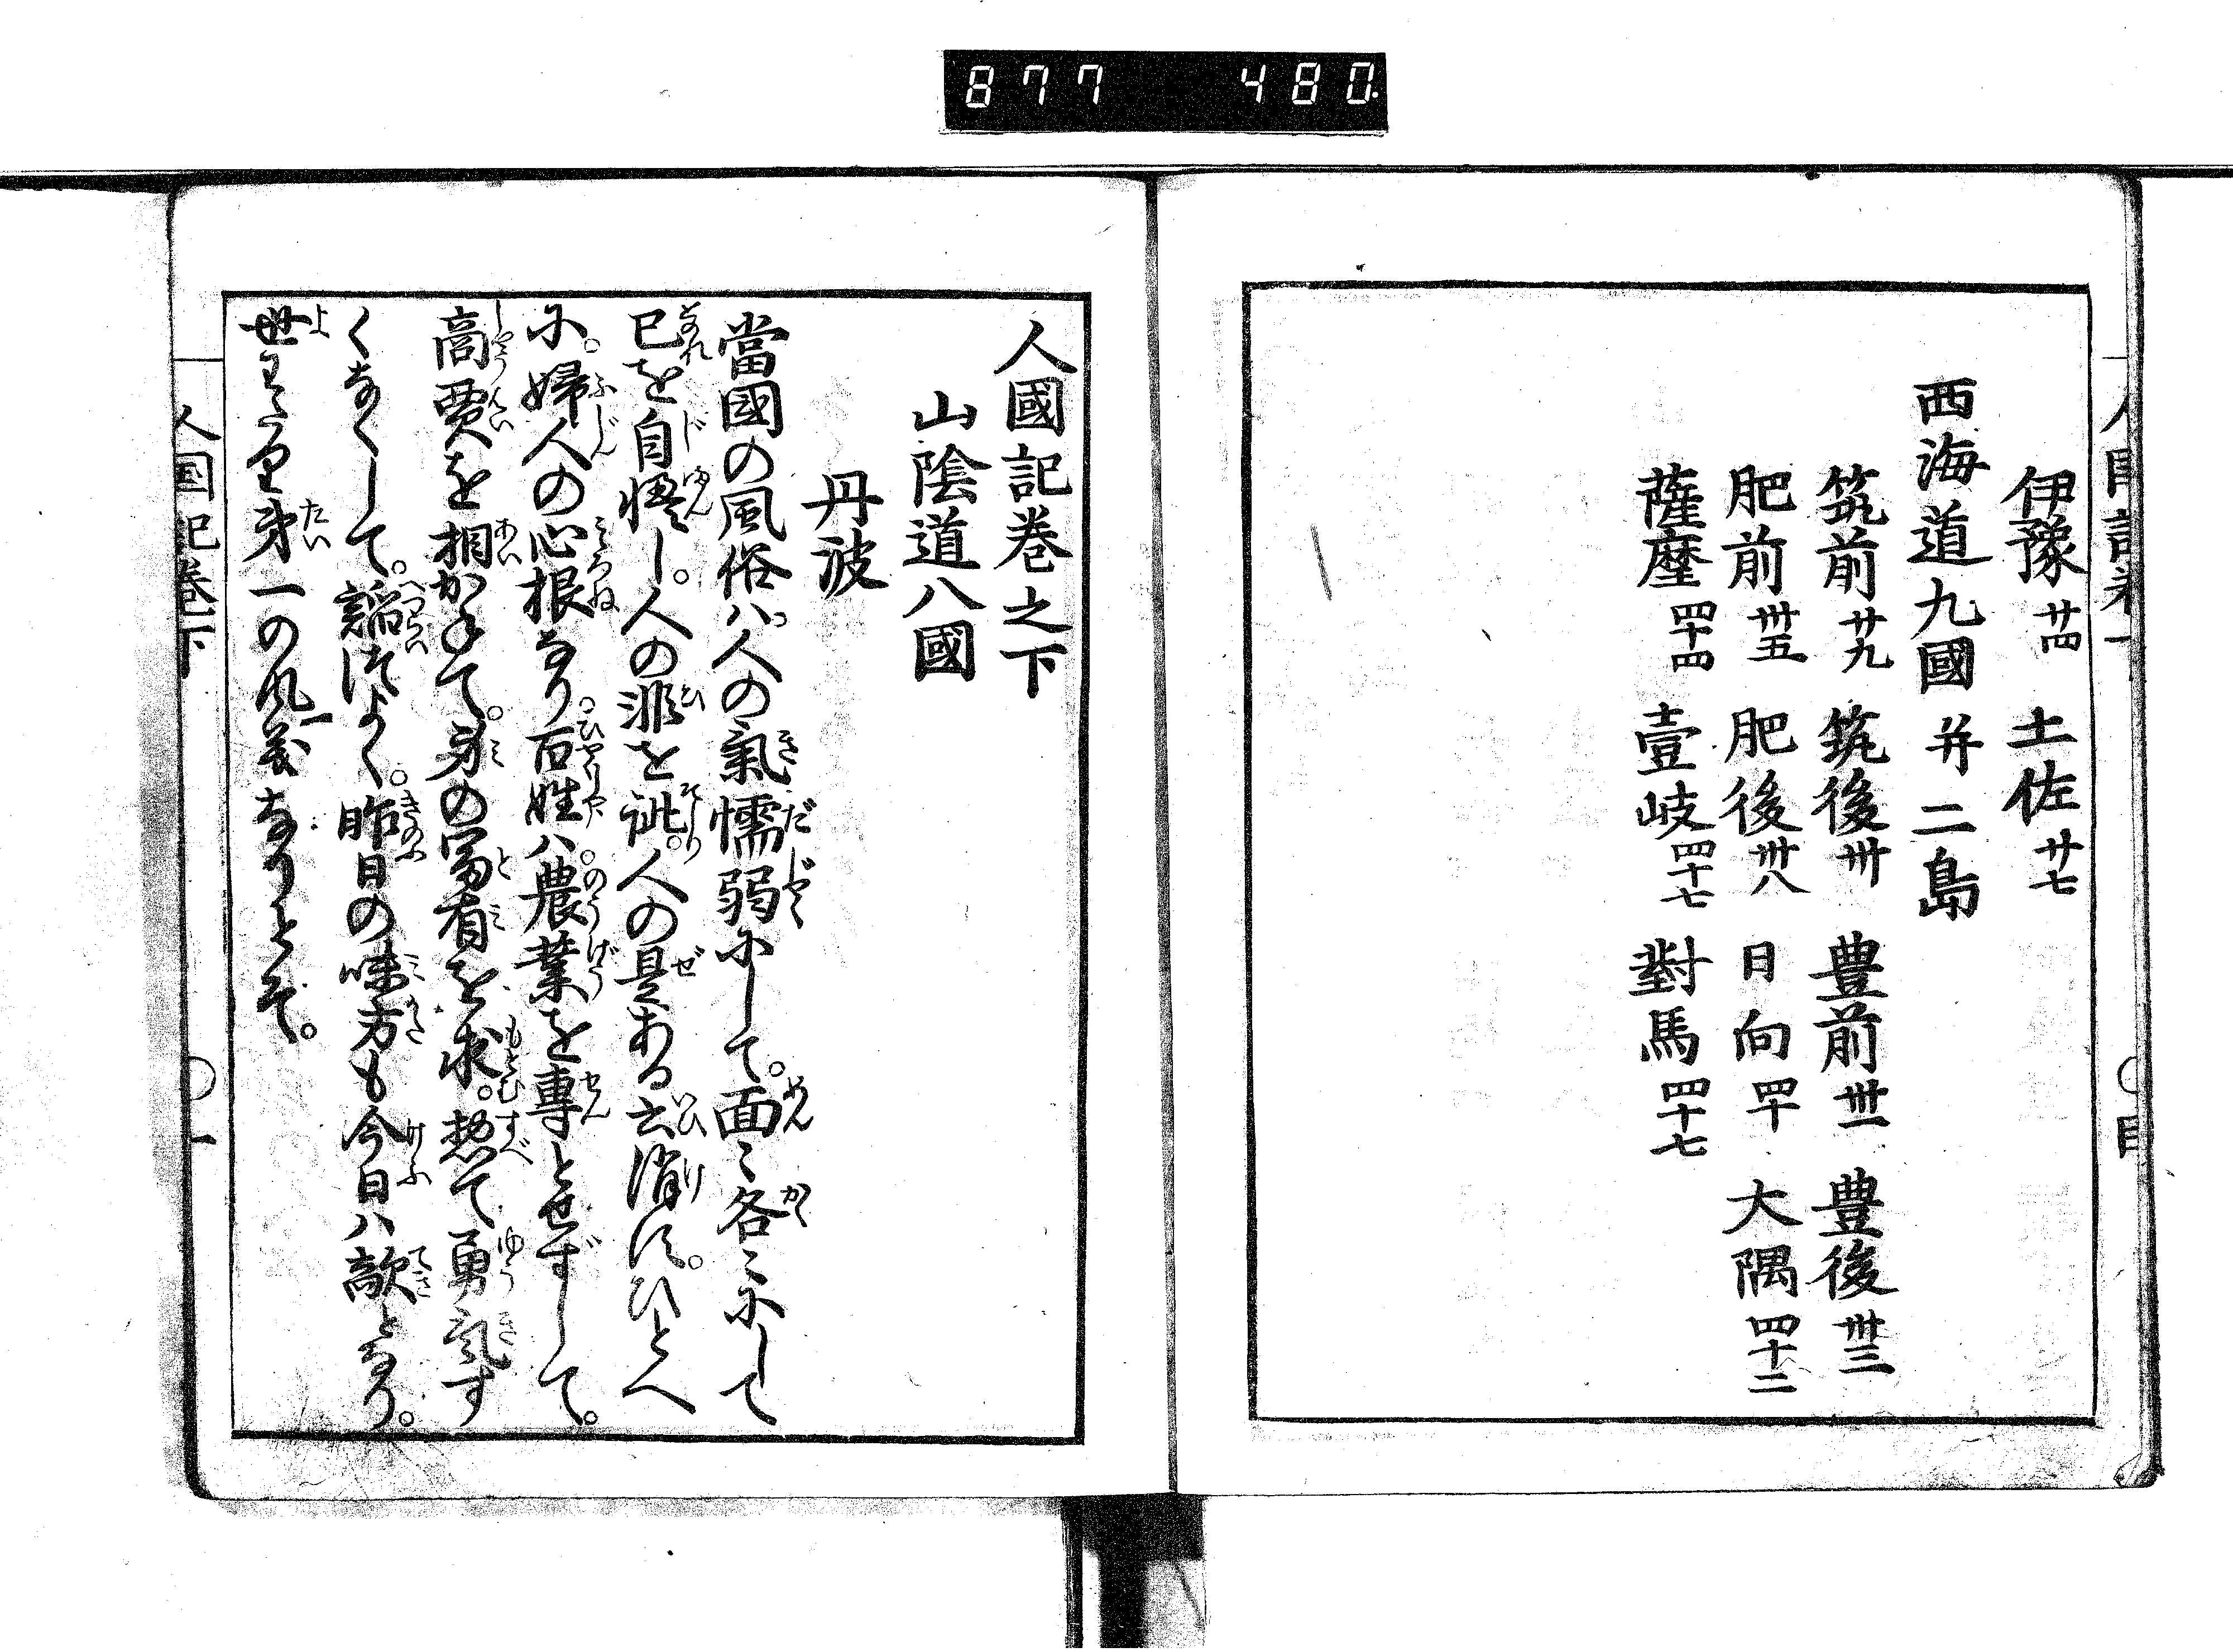 877 480
伊豫 廿四 土佐 廿七
西海道九國 并 二島
筑前 廿九 筑後 卅 豊前 卅一 豊後 卅三
肥前 卅五 肥後 卅八 日向 四十 大隅 四十二
薩摩 四十四 壹岐 四十七 對馬 四十七
目
人國記巻之下
山陰道八國
丹波
當國の風俗ハ人の氣懦弱にして。面々各々にして
己を自
し。人の非を訿。人の是ある云消に。ひとへ
に。婦人の心根なり。百姓ハ農業を専とせずして。
商買を相かねて。身の冨有を求。惣て勇氣す
くなくして。謟つよく。昨日の味方も今日ハ敵となり。
世
第一の風義なりとぞ。
人国記巻下
一